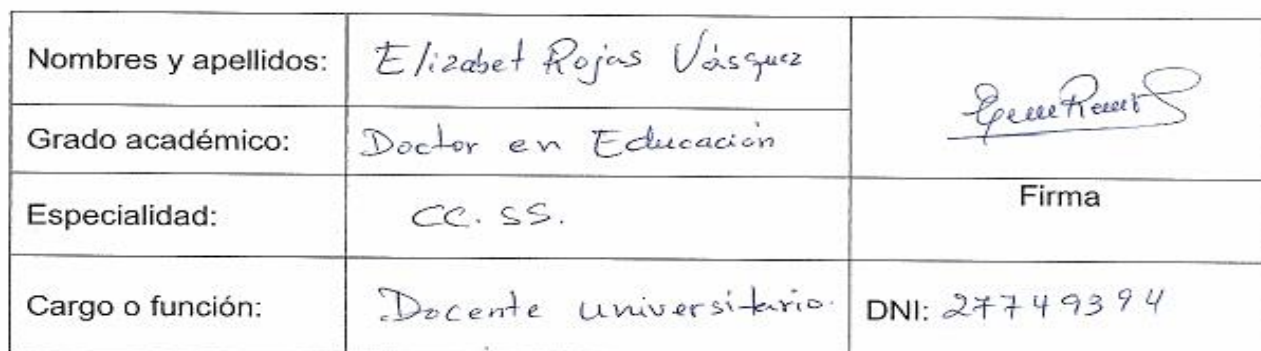 Nombres y apellidos: Elizabet Rojas Vásquez
Grado académico: Doctor en Educación
Especialidad: CC. SS.
Firma
Cargo o función: Docente universitario.
DNI: 27749394